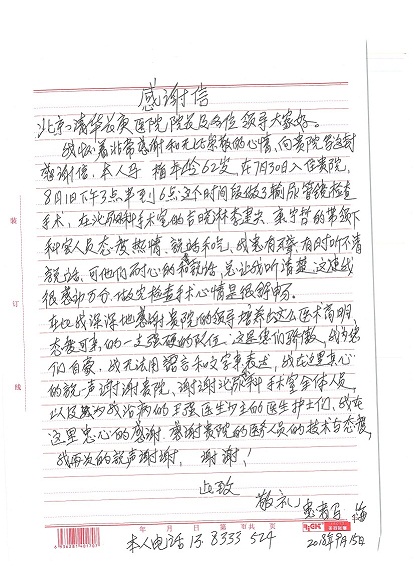 感谢信
北京清华长庚医院院长及各位领导大家好。
我怀着非常感谢和无比崇敬的心情，向贵院写这封
感谢信，本人 指 年龄62岁，在7月30日入住贵院，
8月1日下午3点半到6点这个时间段做了输尿管镜检查
手术，在泌尿科手术室的 李建兴 的带领下
科室人员态度热情，说话和气，我患有耳聋，有时听不清
说话，可他们耐心的和我说话，总让我听清楚，这让我
很感动万分，做完检查手术心情是很舒畅。
在此我深深地感谢贵院的领导培养出这么医术高明，
态度可亲的一支强硬的队伍，这是您们骄傲，我为您
们自豪，我无法用语言和文字来表述，我在这里真心
的说声谢谢贵院，谢谢泌尿科手术室全体人员，
以及为我治病的王强医生护士的医生护士们，我在
这里衷心的感谢。感谢贵院的医务人员的技术与态度，
我再次的说声谢谢，谢谢！
此致
敬礼 患者
2018年9月15日
本人电话 13 8333 524
装
订
线
年 月 日 第 页 共 页
6936281401701